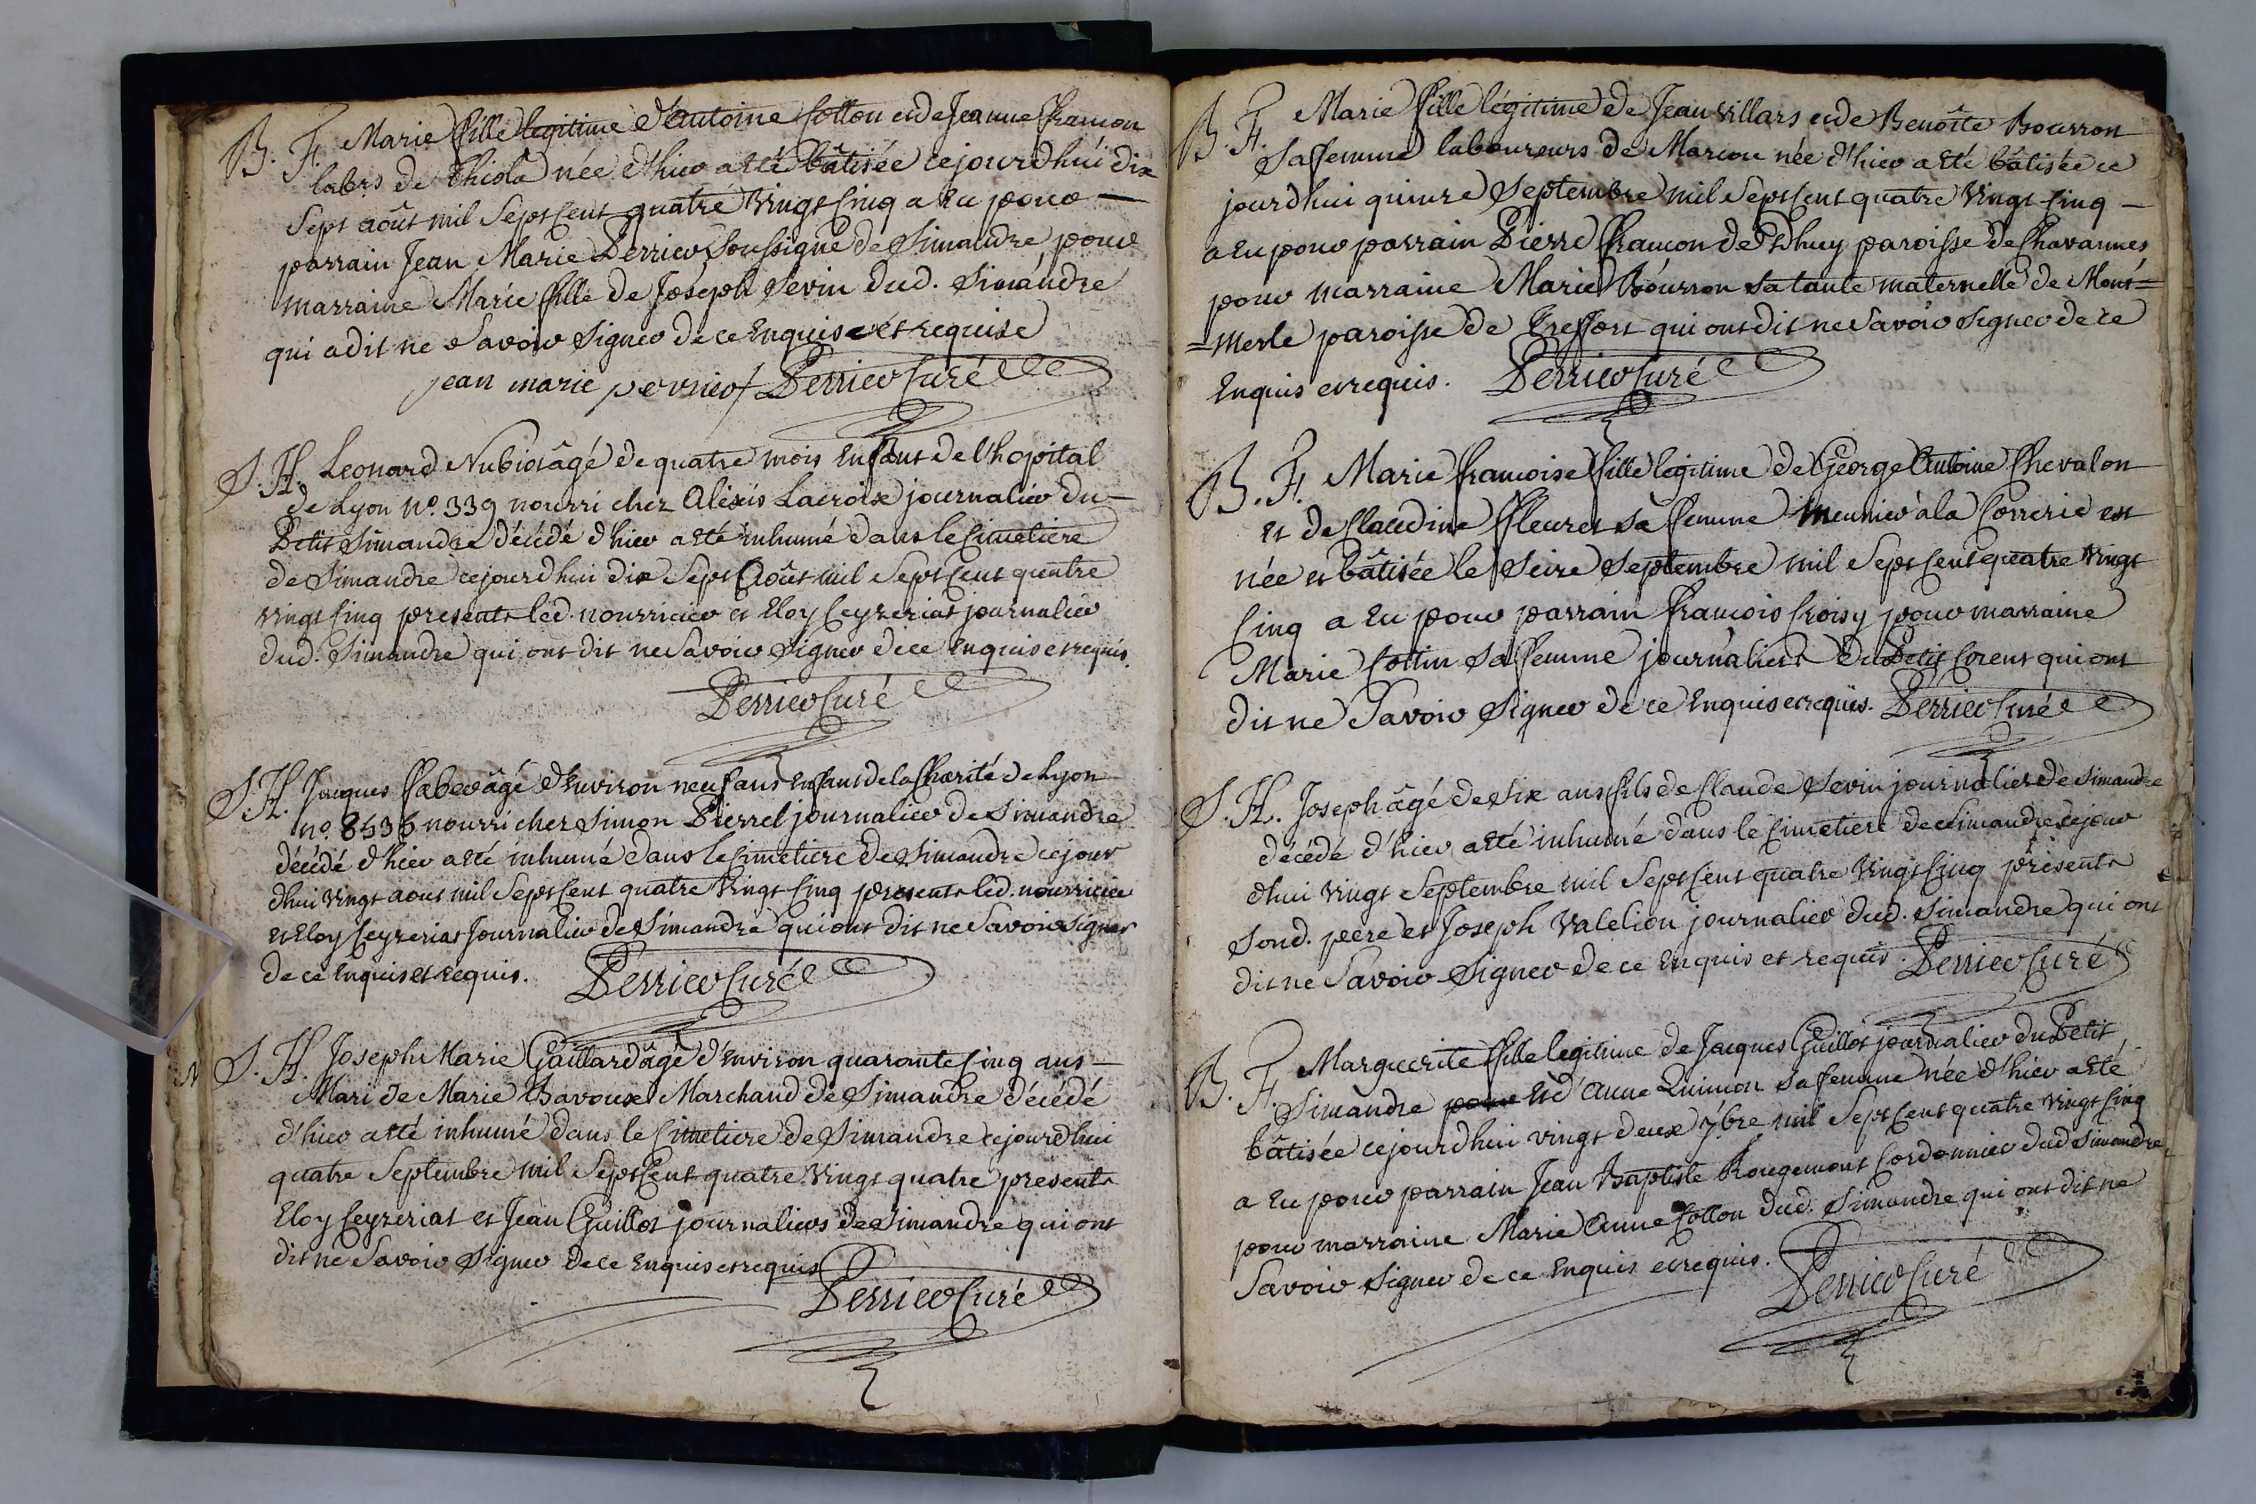 B. F. Marie fille legitime d'Antoine Cotton et de Jeanne Chanon
labrs de Thiola née d'hier a eté bâtisée cejourdhui dix
Sept août mil Sept Cent quatre Vingt Cinq a Eu pour —
parrain Jean Marie Perrier Soussigné de Simandre pour
marraine Marie fille de Joseph Sevin dud. Simandre
qui a dit ne Savoir Signer de ce Enquise et requise
jean marie perrier Perrier Curé
S. H. Leonard Nubiot âgé de quatre mois Enfant de l'hopital
de Lyon no. 339 nourri chez Alexis Lacroix journalier du —
Petit Simandre décédé d'hier a eté inhumé dans le Cimetiere
de Simandre cejourdhui dix Sept Août mil Sept Cent quatre
vingt Cinq presents led. nourricier et Eloy Ceyzeriat journalier
dud. Simandre qui ont dit ne Savoir Signer de ce Enquis et requis.
Perrier Curé
S. H. Jacques Faber âgé d'Environ neuf ans Enfant de la Charité de Lyon
no. 8536 nourri chez Simon Pierrel journalier de Simandre
décédé d'hier a eté inhumé dans le Cimetiere de Simandre cejour
dhui vingt aout mil Sept Cent quatre Vingt Cinq presents led. nourricier
et Eloy Ceyzeriat Journalier de Simandre qui ont dit ne Savoir Signer
de ce Enquis et requis. Perrier Curé
S. H. Joseph Marie Gaillard âgé d'Environ quarante Cinq ans —
Mari de Marie Chavoux Marchand de Simandre décédé
d'hier a eté inhumé dans le Cimetiere de Simandre cejourdhui
quatre Septembre mil Sept Cent quatre Vingt quatre presents
Eloy Ceyzeriat et Jean Guillot journaliers de Simandre qui ont
dit ne Savoir Signer de ce Enquis et requis
Perrier Curé
B. F. Marie fille légitime de Jean Villars et de Benoîte Bourron
Sa femme laboureurs de Marcou née d'hier a eté bâtisée ce
jourdhui quinze Septembre mil Sept Cent quatre Vingt Cinq —
a Eu pour parrain Pierre Chanon de Dhuy paroisse de Chavannes
pour marraine Marie Bourron Sa tante maternelle de Mont=
=merle paroisse de Treffort qui ont dit ne Savoir Signer de ce
Enquis et requis. Perrier Curé
B. F. Marie francoise fille legitime de George Antoine Chevalon
et de Claudine Fleuret Sa femme meunier à la Correrie est
née et bâtisée le Seize Septembre mil Sept Cent quatre Vingt
Cinq a Eu pour parrain francois Croisy pour marraine
Marie Cottin Sa femme journaliers du Petit Corent qui ont
dit ne Savoir Signer de ce Enquis et requis. Perrier Curé
S. H. Joseph âgé de Six ans fils de Claude Sevin journalier de Simandre
décédé d'hier a eté inhumé dans le Cimetiere de Simandre cejour
dhui vingt Septembre mil Sept Cent quatre Vingt Cinq présents
Sond. peere et Joseph Valelion journalier dud. Simandre qui ont
dit ne Savoir Signer de ce Enquis et requis. Perrier Curé
B. F. Marguerite fille legitime de Jacques Guillot journalier du Petit
Simandre pour et d'Anne Quinion Sa femme née d'hier a eté
bâtisée cejourdhui vingt deux 7bre mil Sept Cent quatre vingt Cinq
a Eu pour parrain Jean Baptiste Rougemont Cordonnier dud Simandre
pour marraine Marie Anne Cotton dud. Simandre qui ont dit ne
Savoir Signer de ce Enquis et requis.
Perrier Curé